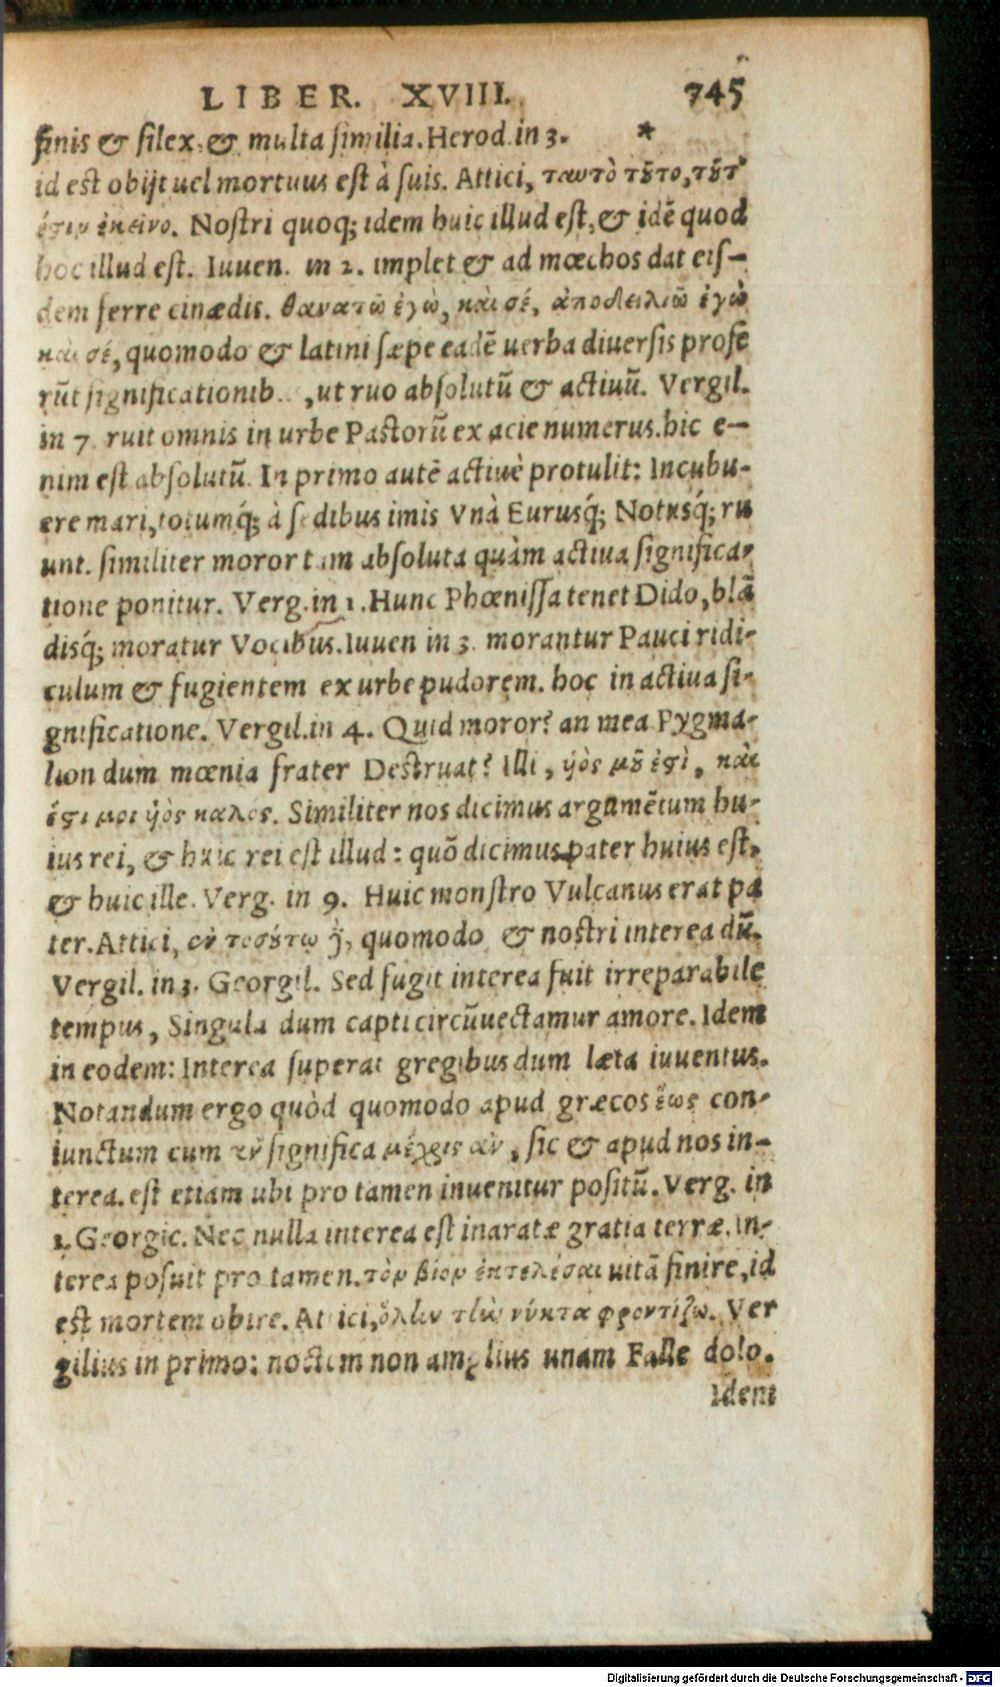 LIBER. XVIII. 745
finis & silex, & multa similia. Herod. in 3. *
id est obijt uel mortuus est à suis. Attici, ταυτὸ τοῦτο, τοῦτ'
ἐστιν ἐκεῖνο. Nostri quoq; idem huic illud est, & idē quod
hoc illud est. Iuuen. in 2. implet & ad mœchos dat eis-
dem ferre cinædis. θανατῶ ἐγὼ, καὶ σέ, ἀποδειλιῶ ἐγὼ
καὶ σέ, quomodo & latini sæpe eadē uerba diuersis profe
rūt significationib. , ut ruo absolutū & actiuū. Vergil.
in 7. ruit omnis in urbe Pastorū ex acie numerus. hic e-
nim est absolutū. In primo autē actiuè protulit: Incubu-
ere mari, totumq́; à sedibus imis Vnà Eurusq́; Notusq́; ru
unt. similiter moror tam absoluta quàm actiua significa-
tione ponitur. Verg. in 1. Hunc Phœnissa tenet Dido, blā
disq́; moratur Vocibus. Iuuen in 3. morantur Pauci ridi-
culum & fugientem ex urbe pudorem. hoc in actiua si-
gnificatione. Vergil. in 4. Quid moror? an mea Pygma-
lion dum mœnia frater Destruat? Illi, ὑός μοῦ ἐστὶ, καὶ
ἔστι μοι ὑὸς καλος. Similiter nos dicimus argumētum hu-
ius rei, & huic rei est illud: quō dicimus pater huius est,
& huic ille. Verg. in 9. Huic monstro Vulcanus erat pa
ter. Attici, ἐν τοσούτῳ quomodo & nostri interea dū.
Vergil. in 3. Georgil. Sed fugit interea fuit irreparabile
tempus, Singula dum capti circūuectamur amore. Idem
in eodem: Interea superat gregibus dum læta iuuentus.
Notandum ergo quòd quomodo apud græcos ἕως con-
iunctum cum ἂν significa μέχρις ἀν, sic & apud nos in-
terea. est etiam ubi pro tamen inuenitur positū. Verg. in
1. Georgic. Nec nulla interea est inaratæ gratia terræ. In-
terea posuit pro tamen. τὸν βίον ἐκτελέσαι uitā finire, id
est mortem obire. Attici, ὅλην τὴν νύκτα φροντίζω. Ver
gilius in primo: noctem non amplius unam Falle dolo.
Idem
Digitalisierung gefördert durch die Deutsche Forschungsgemeinschaft - DFG